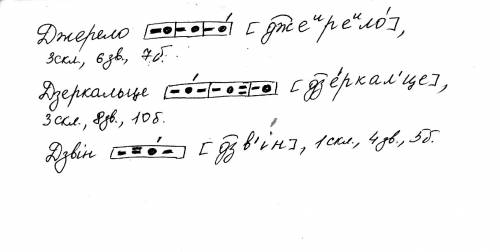 Джерело [–●|–●|–●́] [д͡жеᴵреᴵло́],
3скл, 6зв, 7б.
Дзеркальце [–●́–|–●=|–●] [д͡зе́ркал'це],
3скл., 8зв, 10б.
Дзвін [–=●́–] [д͡зв'ін], 1скл., 4зв., 5б.